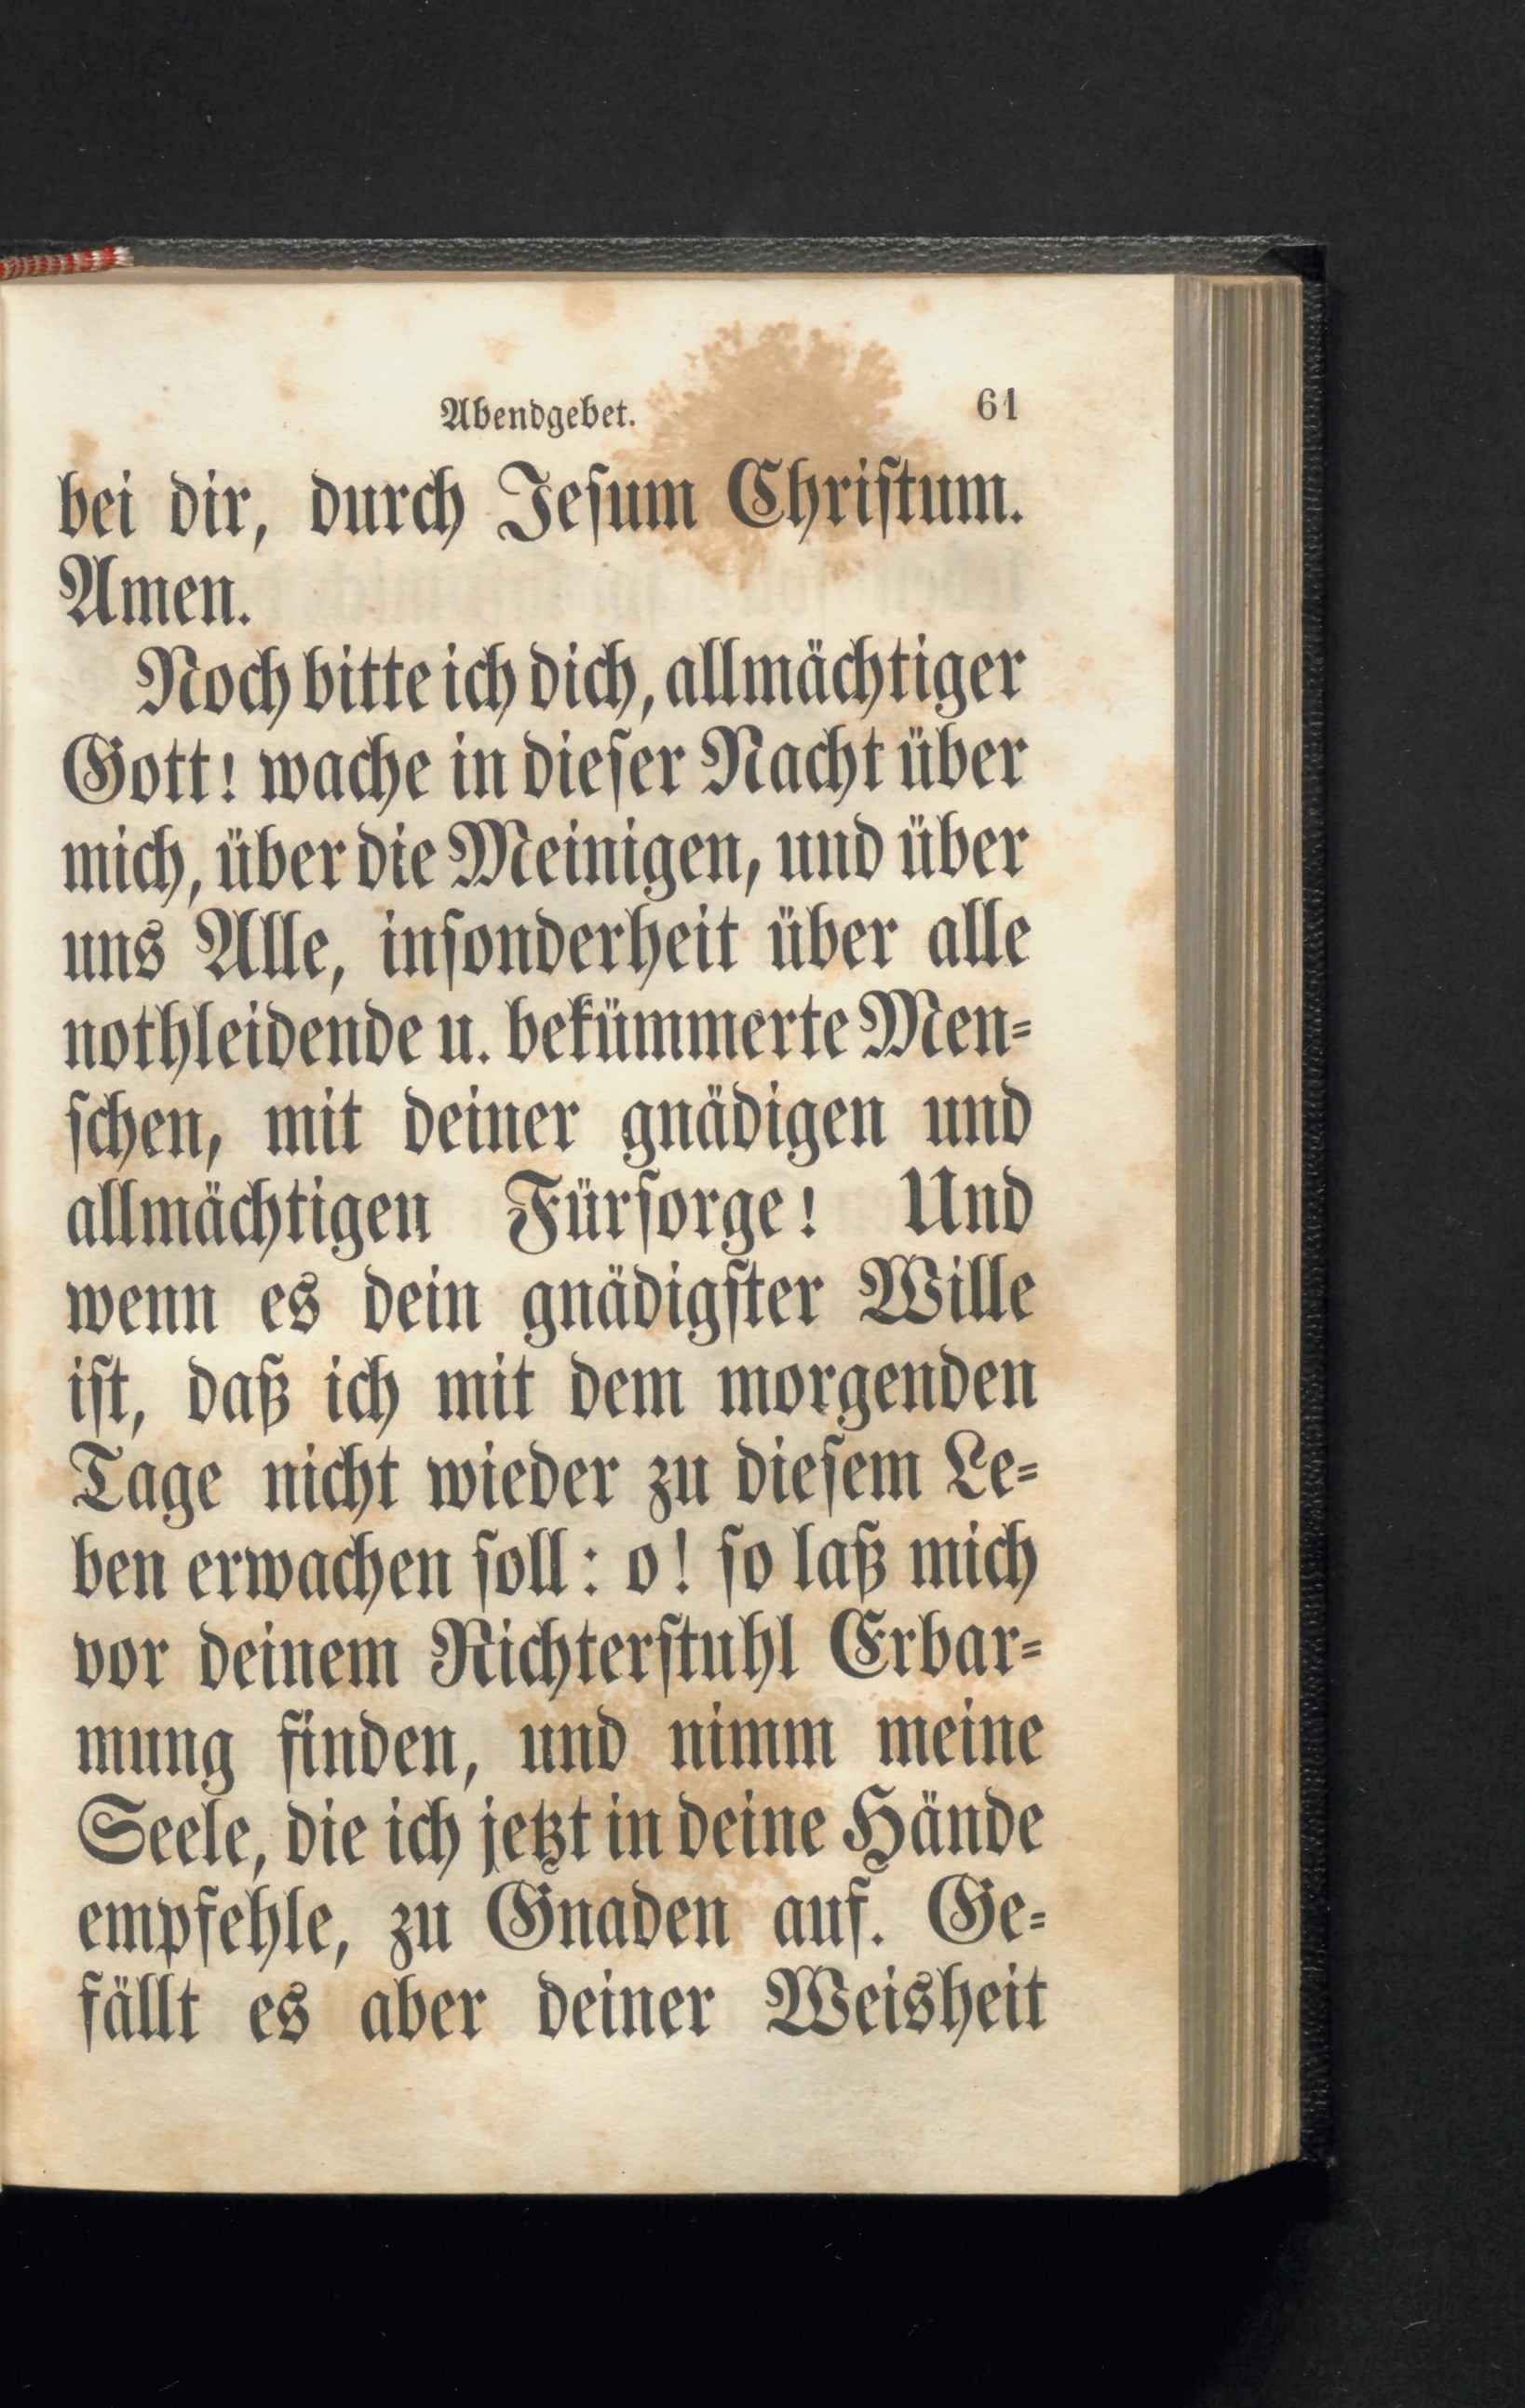 Abendgebet. 61
bei dir, durch Jeſum Chriſtum.
Amen.
Noch bitte ich dich, allmächtiger
Gott! wache in dieſer Nacht über
mich, über die Meinigen, und über
uns Alle, inſonderheit über alle
nothleidende u. bekümmerte Men⸗
ſchen, mit deiner gnädigen und
allmächtigen Fürſorge! Und
wenn es dein gnädigſter Wille
iſt, daß ich mit dem morgenden
Tage nicht wieder zu dieſem Le⸗
ben erwachen ſoll: o! ſo laß mich
vor deinem Richterſtuhl Erbar⸗
mung finden, und nimm meine
Seele, die ich jetzt in deine Hände
empfehle, zu Gnaden auf. Ge⸗
fällt es aber deiner Weisheit